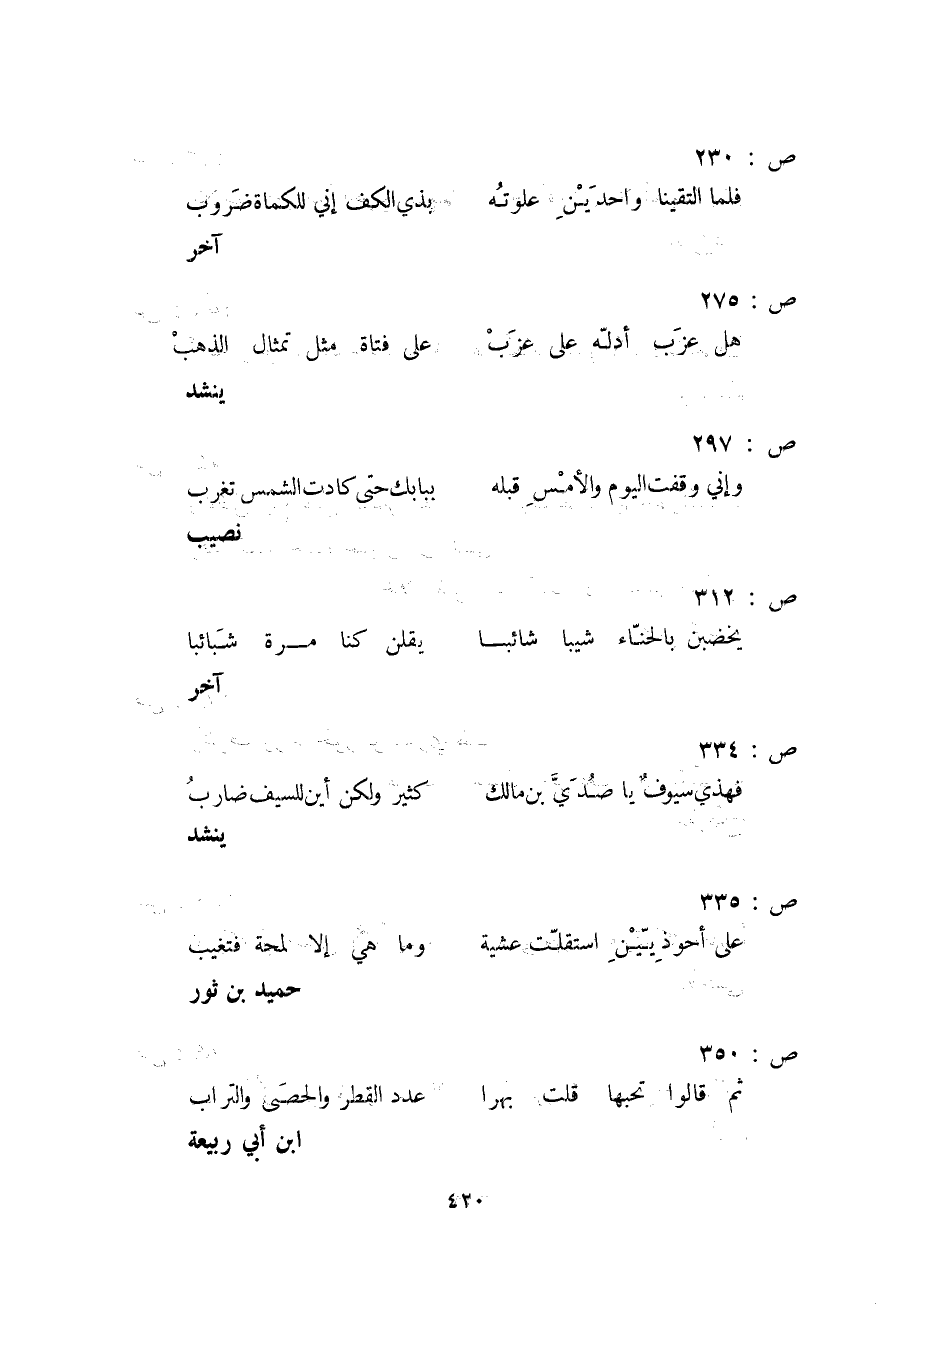 ص : ٢٣٠
فلما التقينا واحدَيْنِ علوتُه بذي الكف إني للكماة ضَروب
آخر
ص : ٢٧٥
هل عزَب أدلّه على عزَبْ على فتاة مثل تمثال الذهبْ
ينشد
ص : ٢٩٧
وإني وقفت اليوم والأمْسِ قبله ببابك حتى كادت الشمس تغرب
نصيب
ص : ٣١٢
يخضبن بالحنّاء شيبا شائبا يقلن كنا مرة شَبَائبا
آخر
ص : ٣٣٤
فهذي سيوفٌ يا صُدَيَّ بن مالك كثير ولكن أين للسيف ضاربُ
ينشد
ص : ٣٣٥
على أحوذِيّيْنِ استقلّت عشية وما هي إلا لمحة فتغيب
حميد بن ثور
ص : ٣٥٠
ثم قالوا تحبها قلت بهرا عدد القطر والحصَى والتراب
ابن أبي ربيعة
٤٢٠